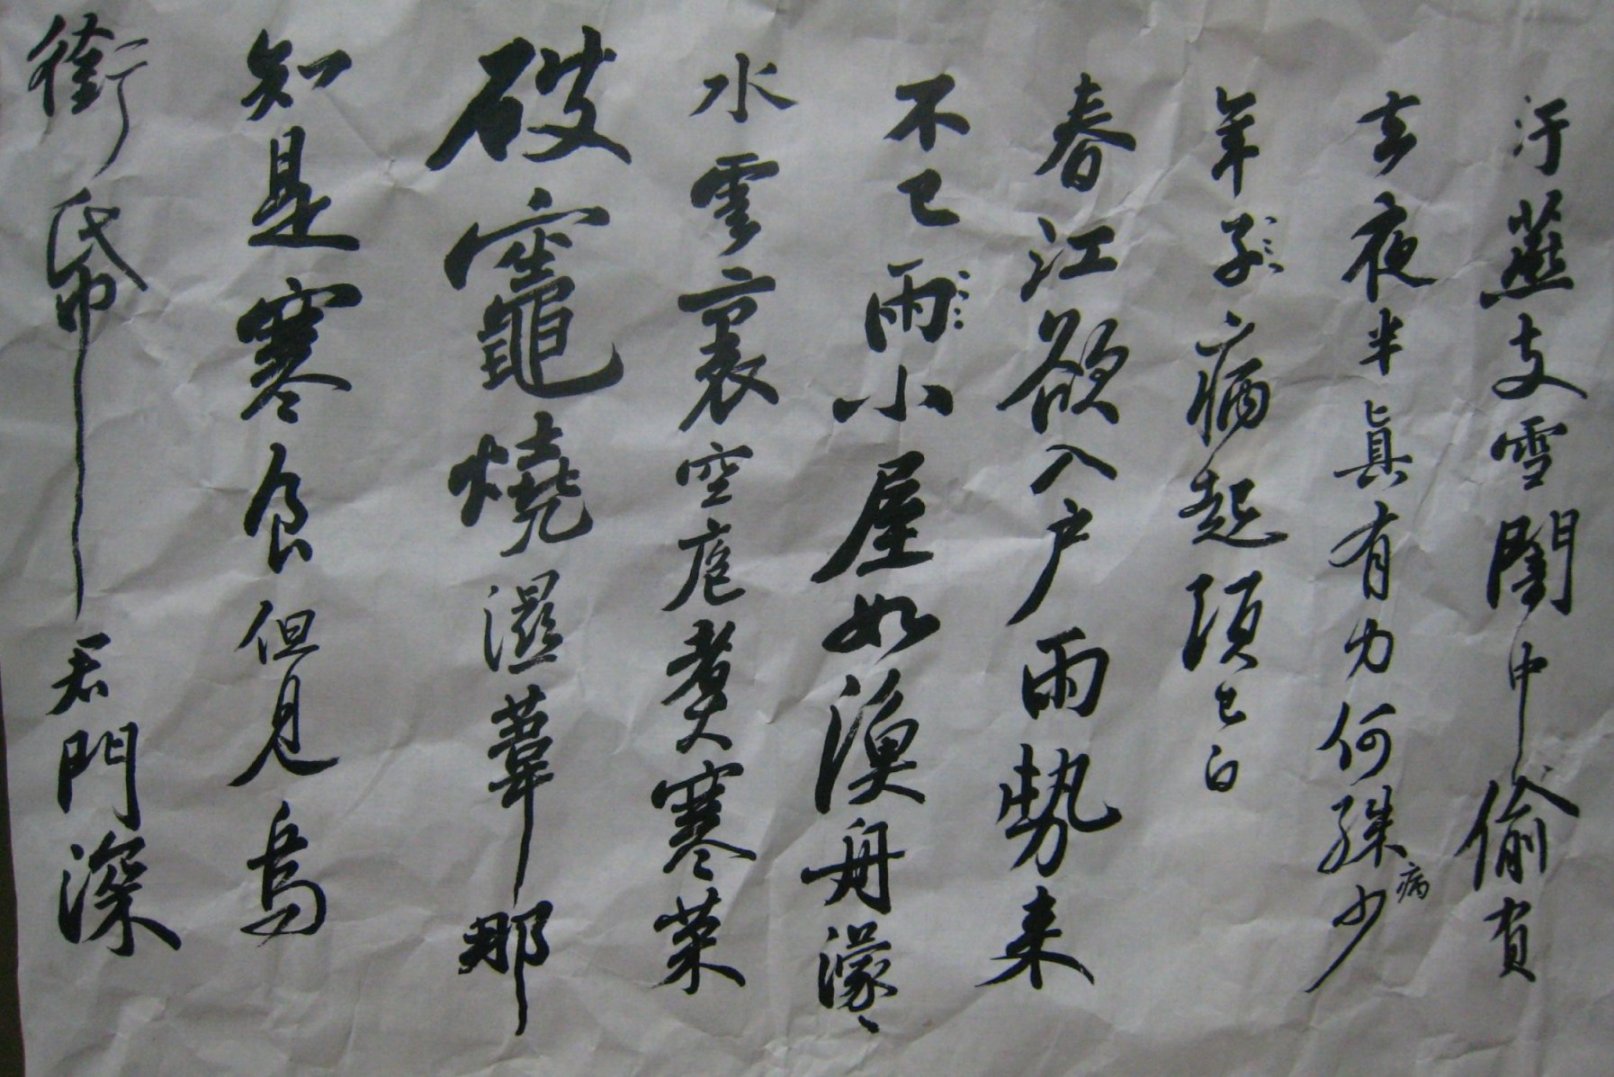 汙燕支雪闇中偷負
去夜半眞有力何殊病少
年子病起須已白
春江欲入戶雨勢来
不已雨小屋如漁舟濛〻
水雲裏空庖煮寒菜
破竈燒濕葦那
知是寒食但見烏
銜帋君門深